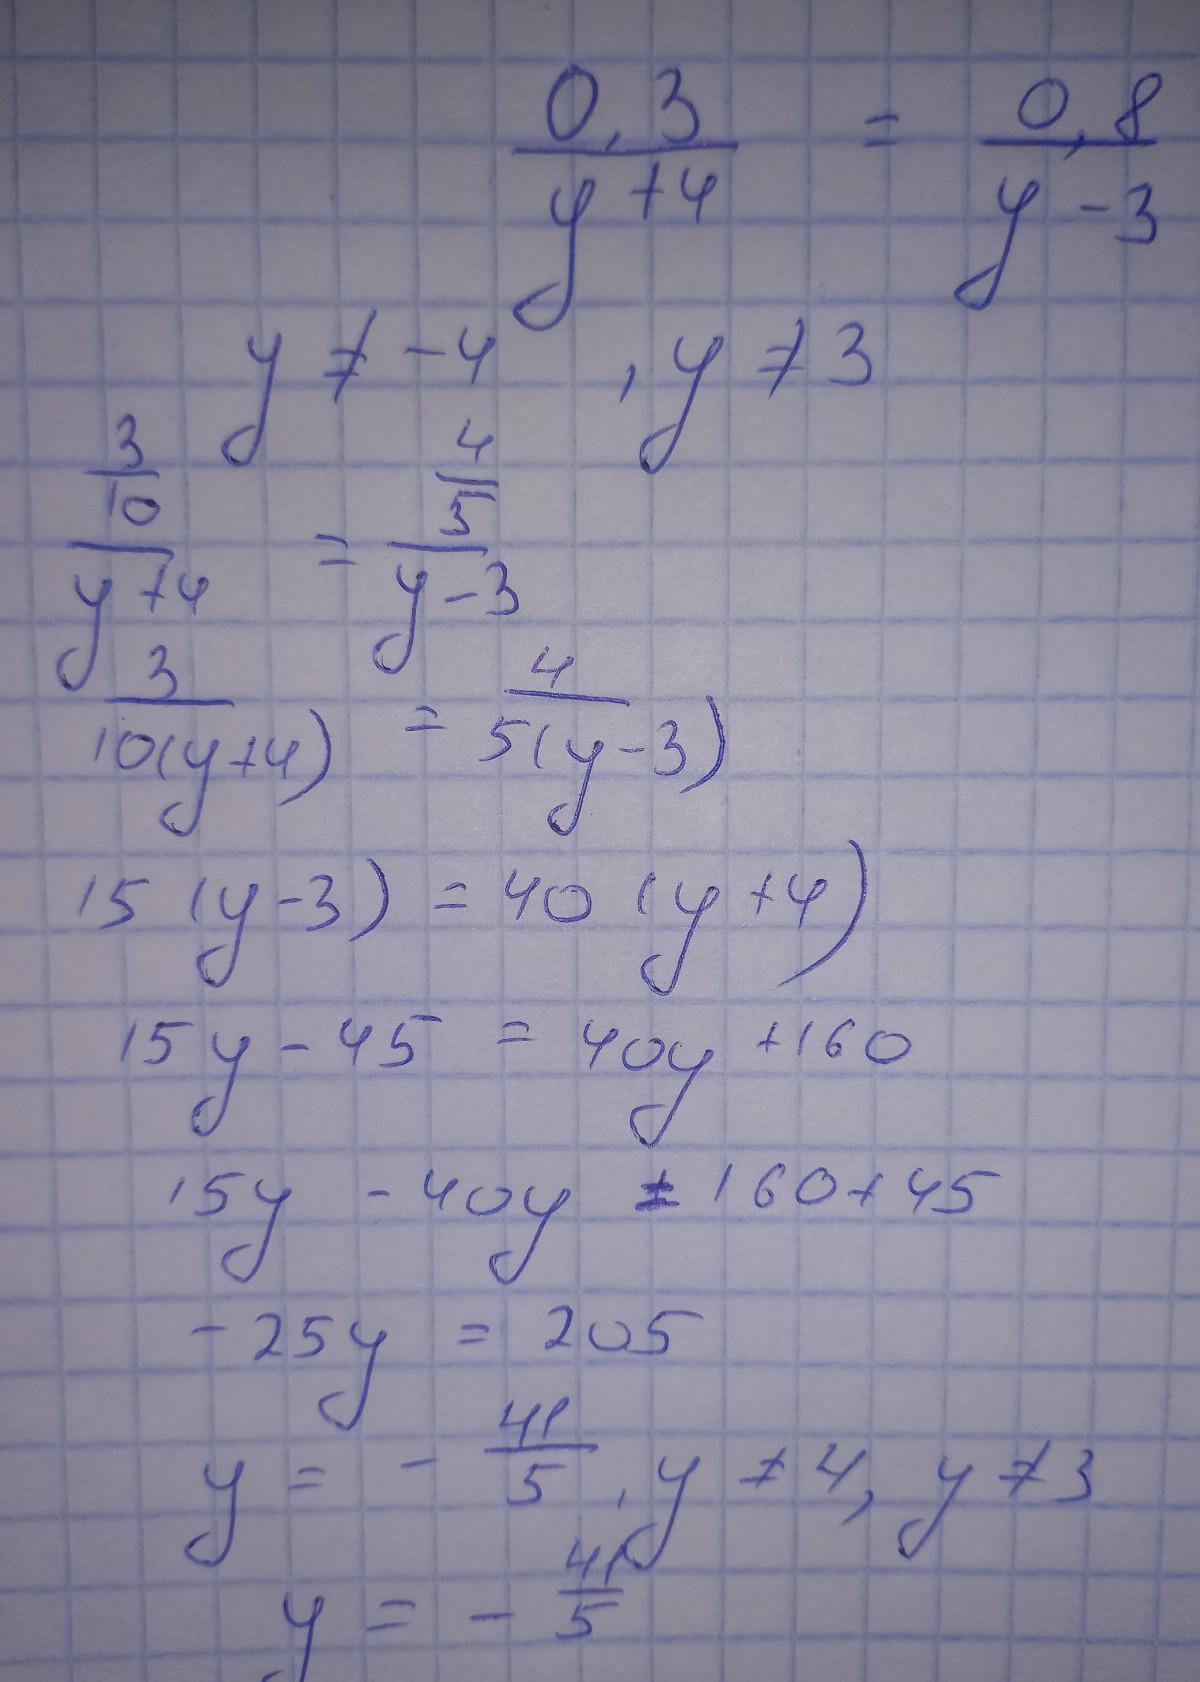 0,3/(y+4) = 0,8/(y-3)
y ≠ -4 , y ≠ 3
(3/10)/(y+4) = (4/5)/(y-3)
3/(10(y+4)) = 4/(5(y-3))
15(y-3) = 40(y+4)
15y-45 = 40y+160
15y -40y = 160+45
-25y = 205
y = - 41/5 , y ≠ 4, y ≠ 3
y = - 41/5